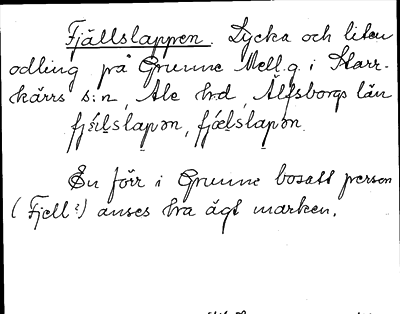 Fjällslappen. Lycka och liten
odling på Grunne Mell.g. i Starr-
kärrs s:n, Ale hd, Älfsborgs län
fjǽlslapən, fjǽlslapən.
En förr i Grunne bosatt person
(Fjell?) anses ha ägt marken.